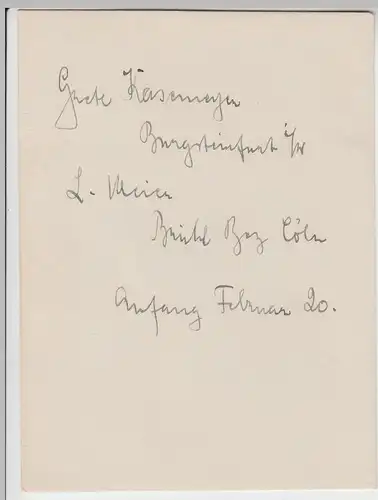 Grete Kasemeyer
Burgsteinfurt i/W
L. Meier
Brühl Bez Cöln
Anfang Februar 20.